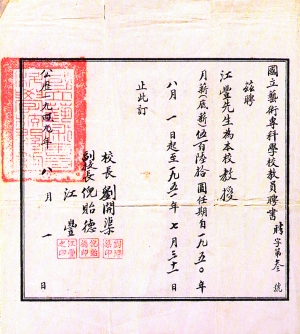 國立藝術專科學校教員聘書 聘字第叁號
茲聘
江豐先生為本校教授
月薪（底薪）伍百陸拾圓任期自一九五〇年
八月一日起至一九五一年七月三十一日
止此訂
校長劉開渠
副校長倪貽德
江豐
公曆一九四九年八月一日